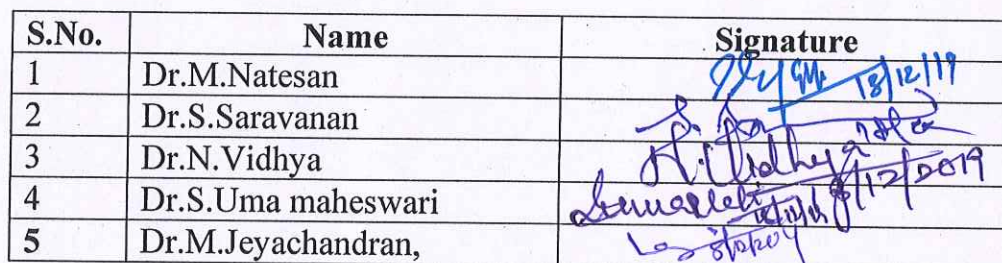 S.No. Name Signature
1 Dr.M.Natesan 18/12/19
2 Dr.S.Saravanan
3 Dr.N.Vidhya N.Vidhya 18/12/2019
4 Dr.S.Uma maheswari
5 Dr.M.Jeyachandran,